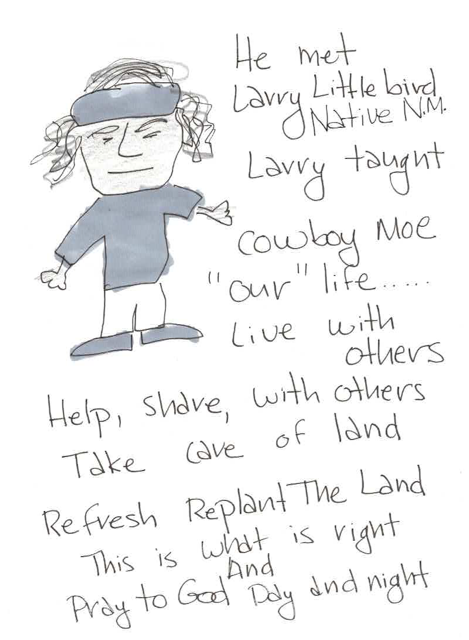 He met
Larry Little bird
Native N.M.
Larry taught
Cowboy Moe
"our" life......
Live with
others
Help, share, with others
Take care of land
Refresh Replant The Land
This is what is right
And
Pray to God Day and night